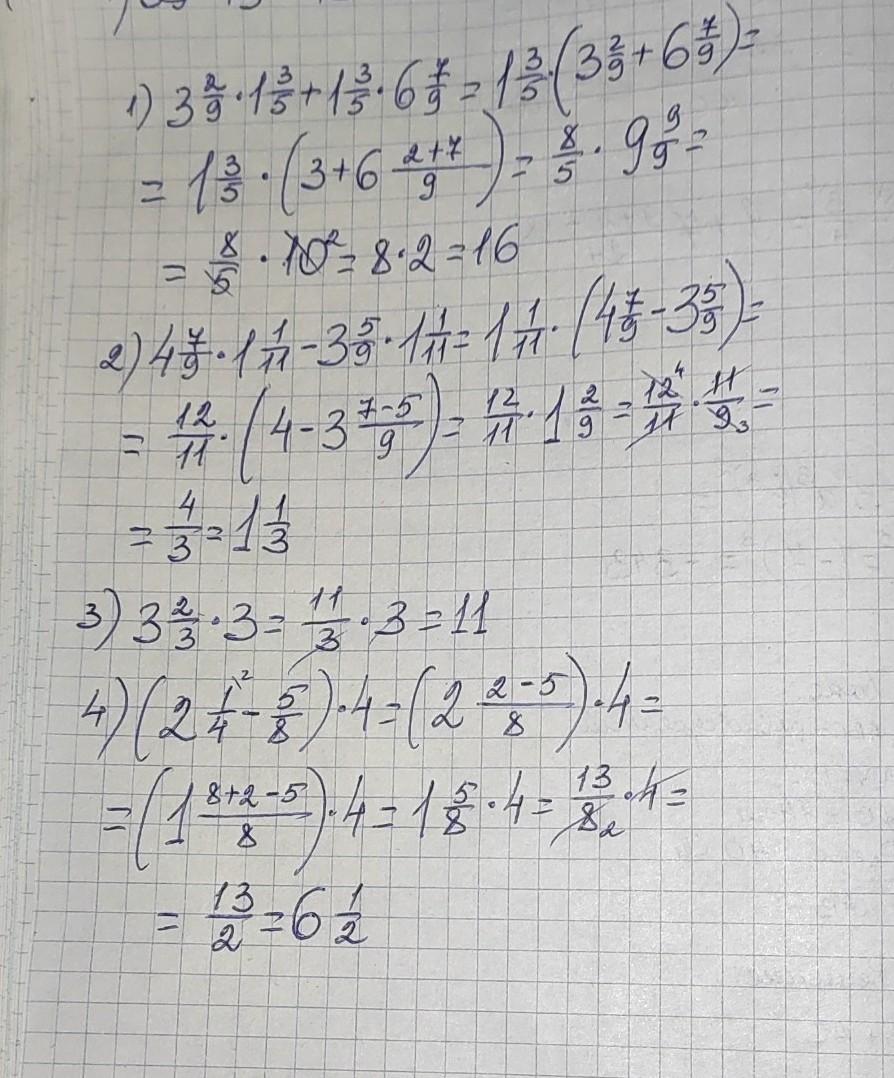 1) 3 2/9 · 1 3/5 + 1 3/5 · 6 7/9 = 1 3/5 · (3 2/9 + 6 7/9) =
= 1 3/5 · (3+6 (2+7)/9) = 8/5 · 9 9/9 =
= 8/5 · 10² = 8·2 = 16
2) 4 7/9 · 1 1/11 - 3 5/9 · 1 1/11 = 1 1/11 · (4 7/9 - 3 5/9) =
= 12/11 · (4-3 (7-5)/9) = 12/11 · 1 2/9 = 12⁴/11 · 11/9₃ =
= 4/3 = 1 1/3
3) 3 2/3 · 3 = 11/3 · 3 = 11
4) (2 1²/4 - 5/8) · 4 = (2 (2-5)/8) · 4 =
= (1 (8+2-5)/8) · 4 = 1 5/8 · 4 = 13/8₂ · 4 =
= 13/2 = 6 1/2